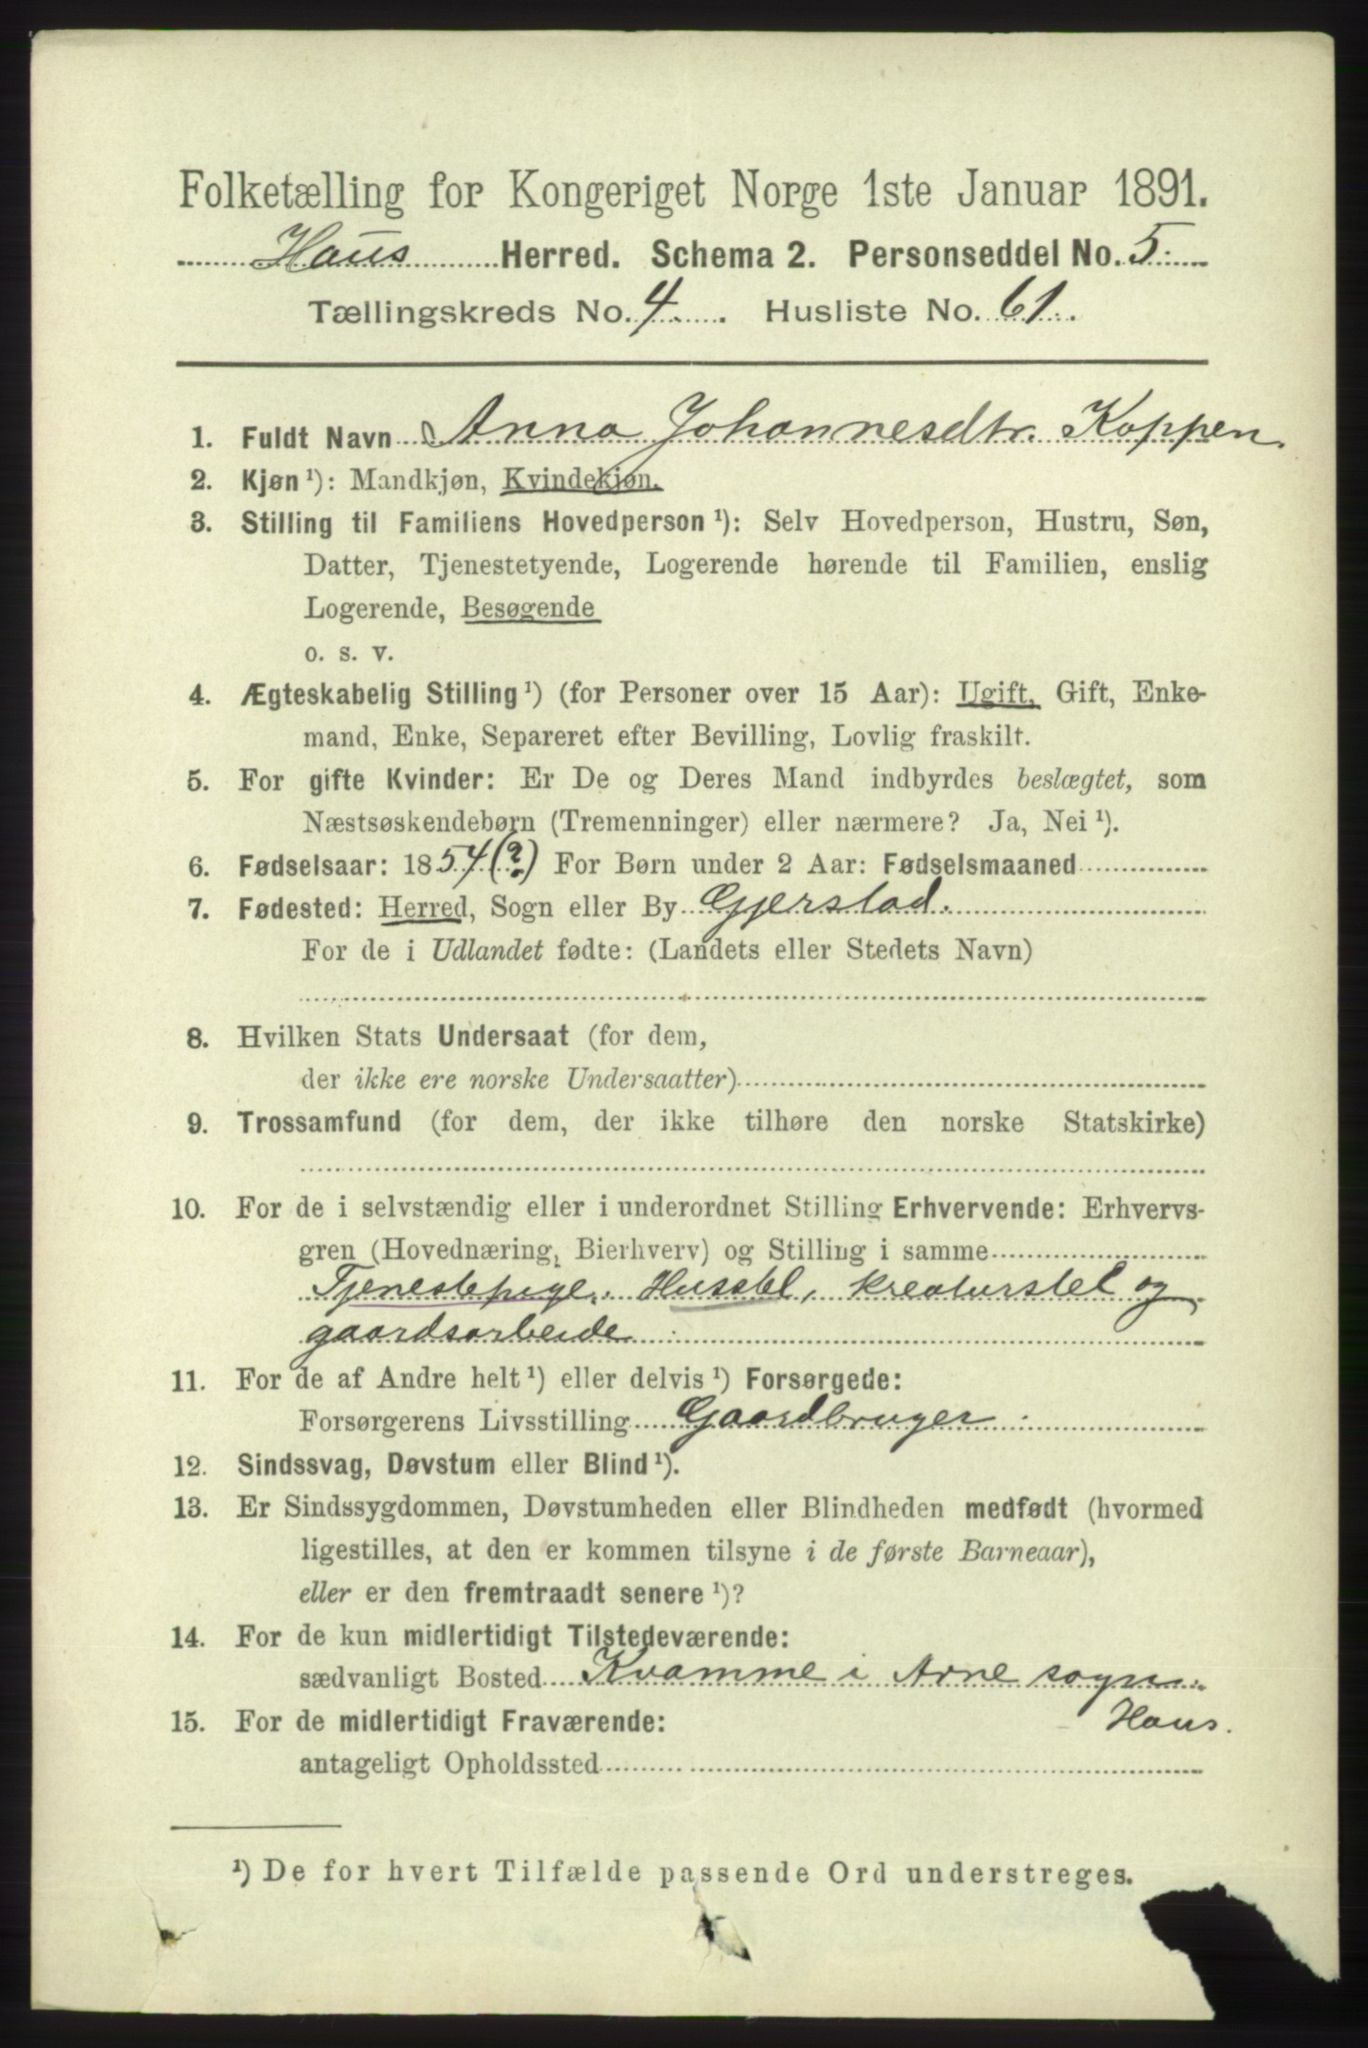 Folketælling for Kongeriget Norge 1ste Januar 1891.
Haus Herred. Schema 2. Personseddel No. 5.
Tællingskreds No. 4. Husliste No. 61.
1. Fuldt Navn Anna Johannesdtr. Koppen.
2. Kjøn ¹): Mandkjøn, Kvindekjøn.
3. Stilling til Familiens Hovedperson ¹): Selv Hovedperson, Hustru, Søn,
Datter, Tjenestetyende, Logerende hørende til Familien, enslig
Logerende, Besøgende
o. s. v.
4. Ægteskabelig Stilling ¹) (for Personer over 15 Aar): Ugift, Gift, Enke-
mand, Enke, Separeret efter Bevilling, Lovlig fraskilt.
5. For gifte Kvinder: Er De og Deres Mand indbyrdes beslægtet, som
Næstsøskendebørn (Tremenninger) eller nærmere? Ja, Nei ¹).
6. Fødselsaar: 1854 (?) For Børn under 2 Aar: Fødselsmaaned
7. Fødested: Herred, Sogn eller By Gjerstad.
For de i Udlandet fødte: (Landets eller Stedets Navn)
8. Hvilken Stats Undersaat (for dem,
der ikke ere norske Undersaatter)
9. Trossamfund (for dem, der ikke tilhøre den norske Statskirke)
10. For de i selvstændig eller i underordnet Stilling Erhvervende: Erhvervs-
gren (Hovednæring, Bierhverv) og Stilling i samme
Tjenestepige. Husstel, kreaturstel og
gaardsarbeide
11. For de af Andre helt ¹) eller delvis ¹) Forsørgede:
Forsørgerens Livsstilling Gaardbruger
12. Sindssvag, Døvstum eller Blind ¹).
13. Er Sindssygdommen, Døvstumheden eller Blindheden medfødt (hvormed
ligestilles, at den er kommen tilsyne i de første Barneaar),
eller er den fremtraadt senere ¹)?
14. For de kun midlertidigt Tilstedeværende:
sædvanligt Bosted Kvamme i Arne sogn.
Haus.
15. For de midlertidigt Fraværende:
antageligt Opholdssted
¹) De for hvert Tilfælde passende Ord understreges.